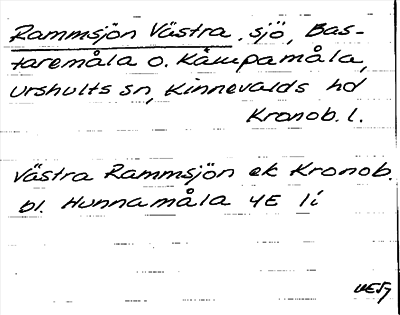 Rammsjön Västra, sjö, Bas-
taremåla o. Kämpamåla,
Urshults sn, Kinnevalds hd
Kronob. l.
Västra Rammsjön ek Kronob.
bl. Hunnamåla 4E 1i